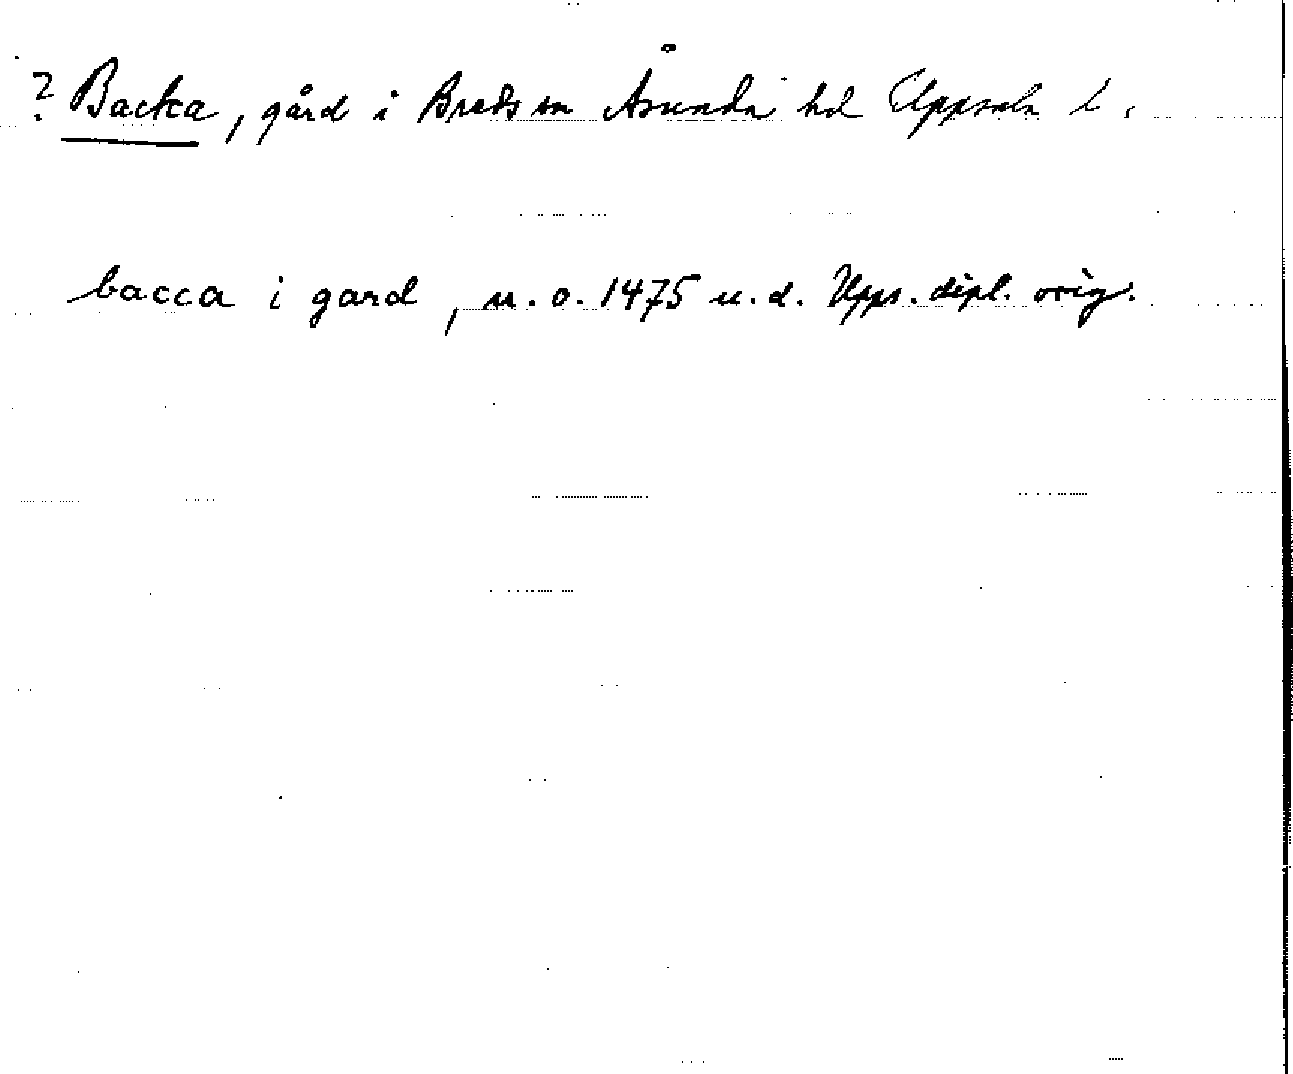 ? Backa, gård i Breds sn Åsunda hd Uppsala l.
bacca i gard, u. o. 1475 u. d. Upps. dipl. orig.